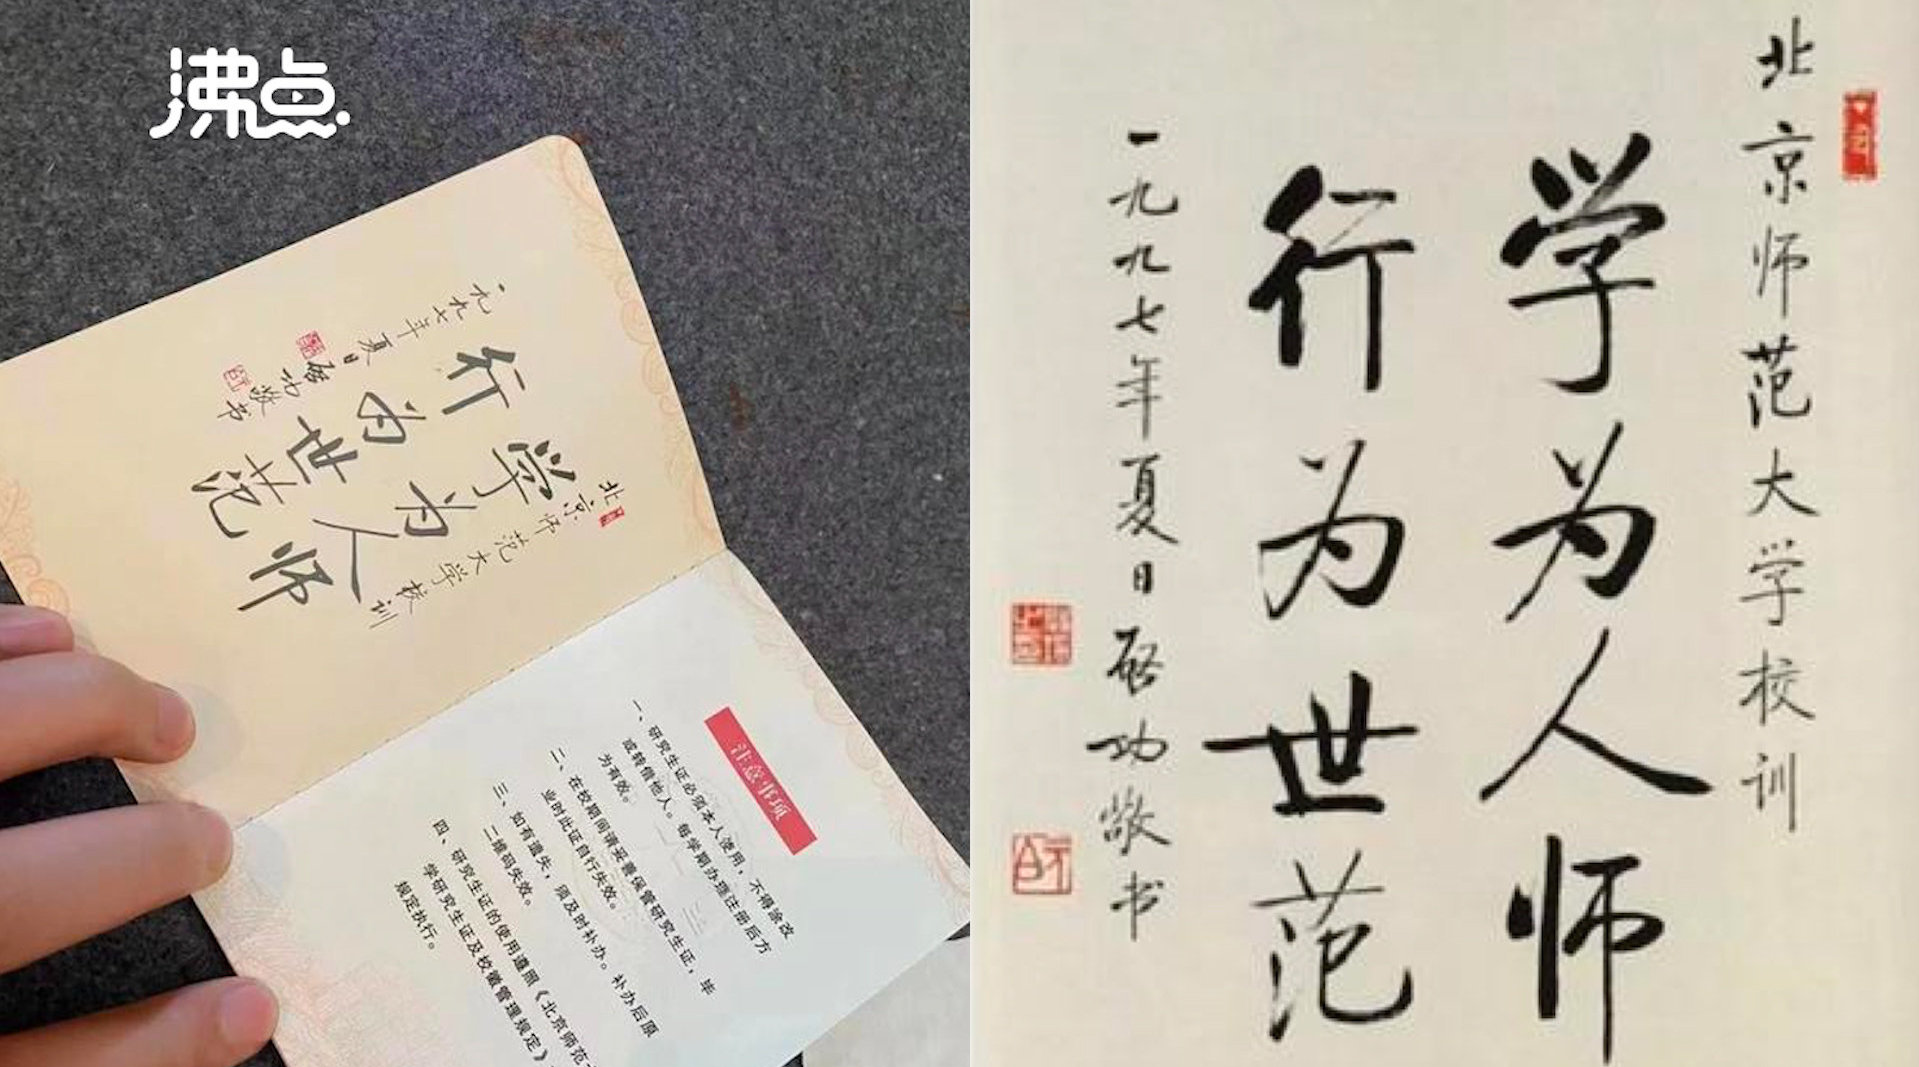 沸点
北京师范大学校训
学为人师
行为世范
一九九七年夏日启功敬书
注意事项
一、研究生证必须本人使用，不得涂改
或转借他人。每学期办理注册后方
为有效。
二、在校期间请妥善保管研究生证，毕
业时此证自行失效。
三、如有遗失，须及时补办。补办后原
二维码失效。
四、研究生证的使用遵照《北京师范
学研究生证及校徽管理规定》
规定执行。
北京师范大学校训
学为人师
行为世范
一九九七年夏日启功敬书